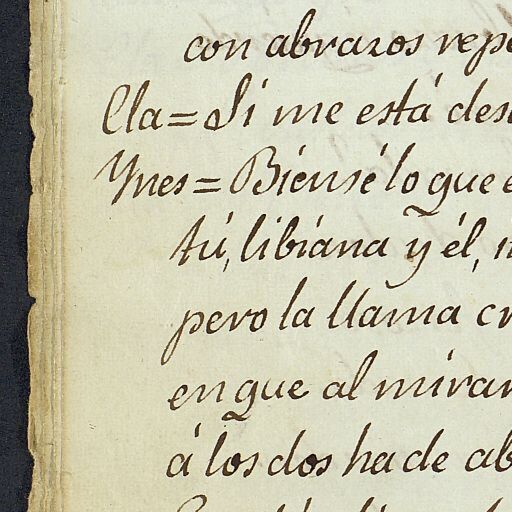 con abrazos repe
Cla= Si me está des
Ynes= Bién sé lo que e
tú, libiana y él,
pero la llama cr
en que al mirar
á los dos ha de ab